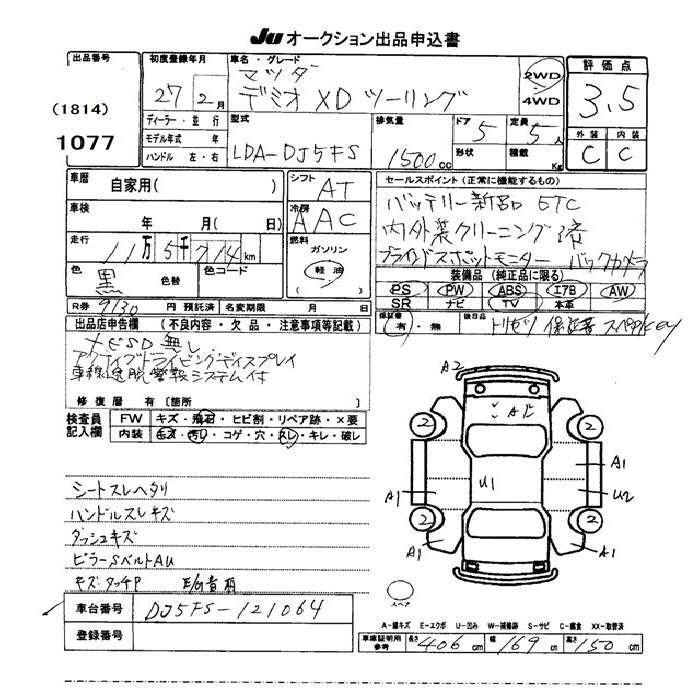 JU オークション出品申込書
出品番号
(1814)
1077
初度登録年月
27 2月
車名・グレード
マツダ
デミオ XD ツーリング
2WD
4WD
評価点
3.5
外装 内装
C C
ディーラー・並行
モデル年式 年
ハンドル 左・右
型式
LDA-DJ5FS
排気量
1500cc
ドア 5
定員 5人
形状
積載 Kg
車歴 自家用( )
シフト AT
車検 年 月( 日)
冷房 AAC
走行 11万5千714km
燃料 ガソリン
軽油
色 黒 色替
色コード
R券 9130円 預託済 名変期限 月 日
セールスポイント(正常に機能するもの)
バッテリー新品 ETC
内外装クリーニング済
ブラインドスポットモニター バックカメラ
装備品(純正品に限る)
PS PW ABS エアB AW
SR ナビ TV 本革
保証書 有・無
後日品 トリセツ 保証書 スペアKey
出品店申告欄(不良内容・欠品・注意事項等記載)
ナビSD無し
アクティブドライビングディスプレイ
車線逸脱警報システム付
修復歴 有 [箇所 ]
検査員
記入欄
FW キズ・飛石・ヒビ割・リペア跡・X要
内装 キズ・汚レ・コゲ・穴・スレ・キレ・破レ
シートスレヘタリ
ハンドルスレキズ
ダッシュキズ
ピラーSベルトAU
キズ・タッチP E/G音有
車台番号 DJ5FS-121064
登録番号
A2
A1
2 2
U1
A1 A1
U2
2 2
A1 A1
スペア
A-線キズ E-エクボ U-凹み W-補修跡 S-サビ C-腐食 XX-取替済
車庫証明用
参考
長さ 406cm 幅 169cm 高さ 150cm